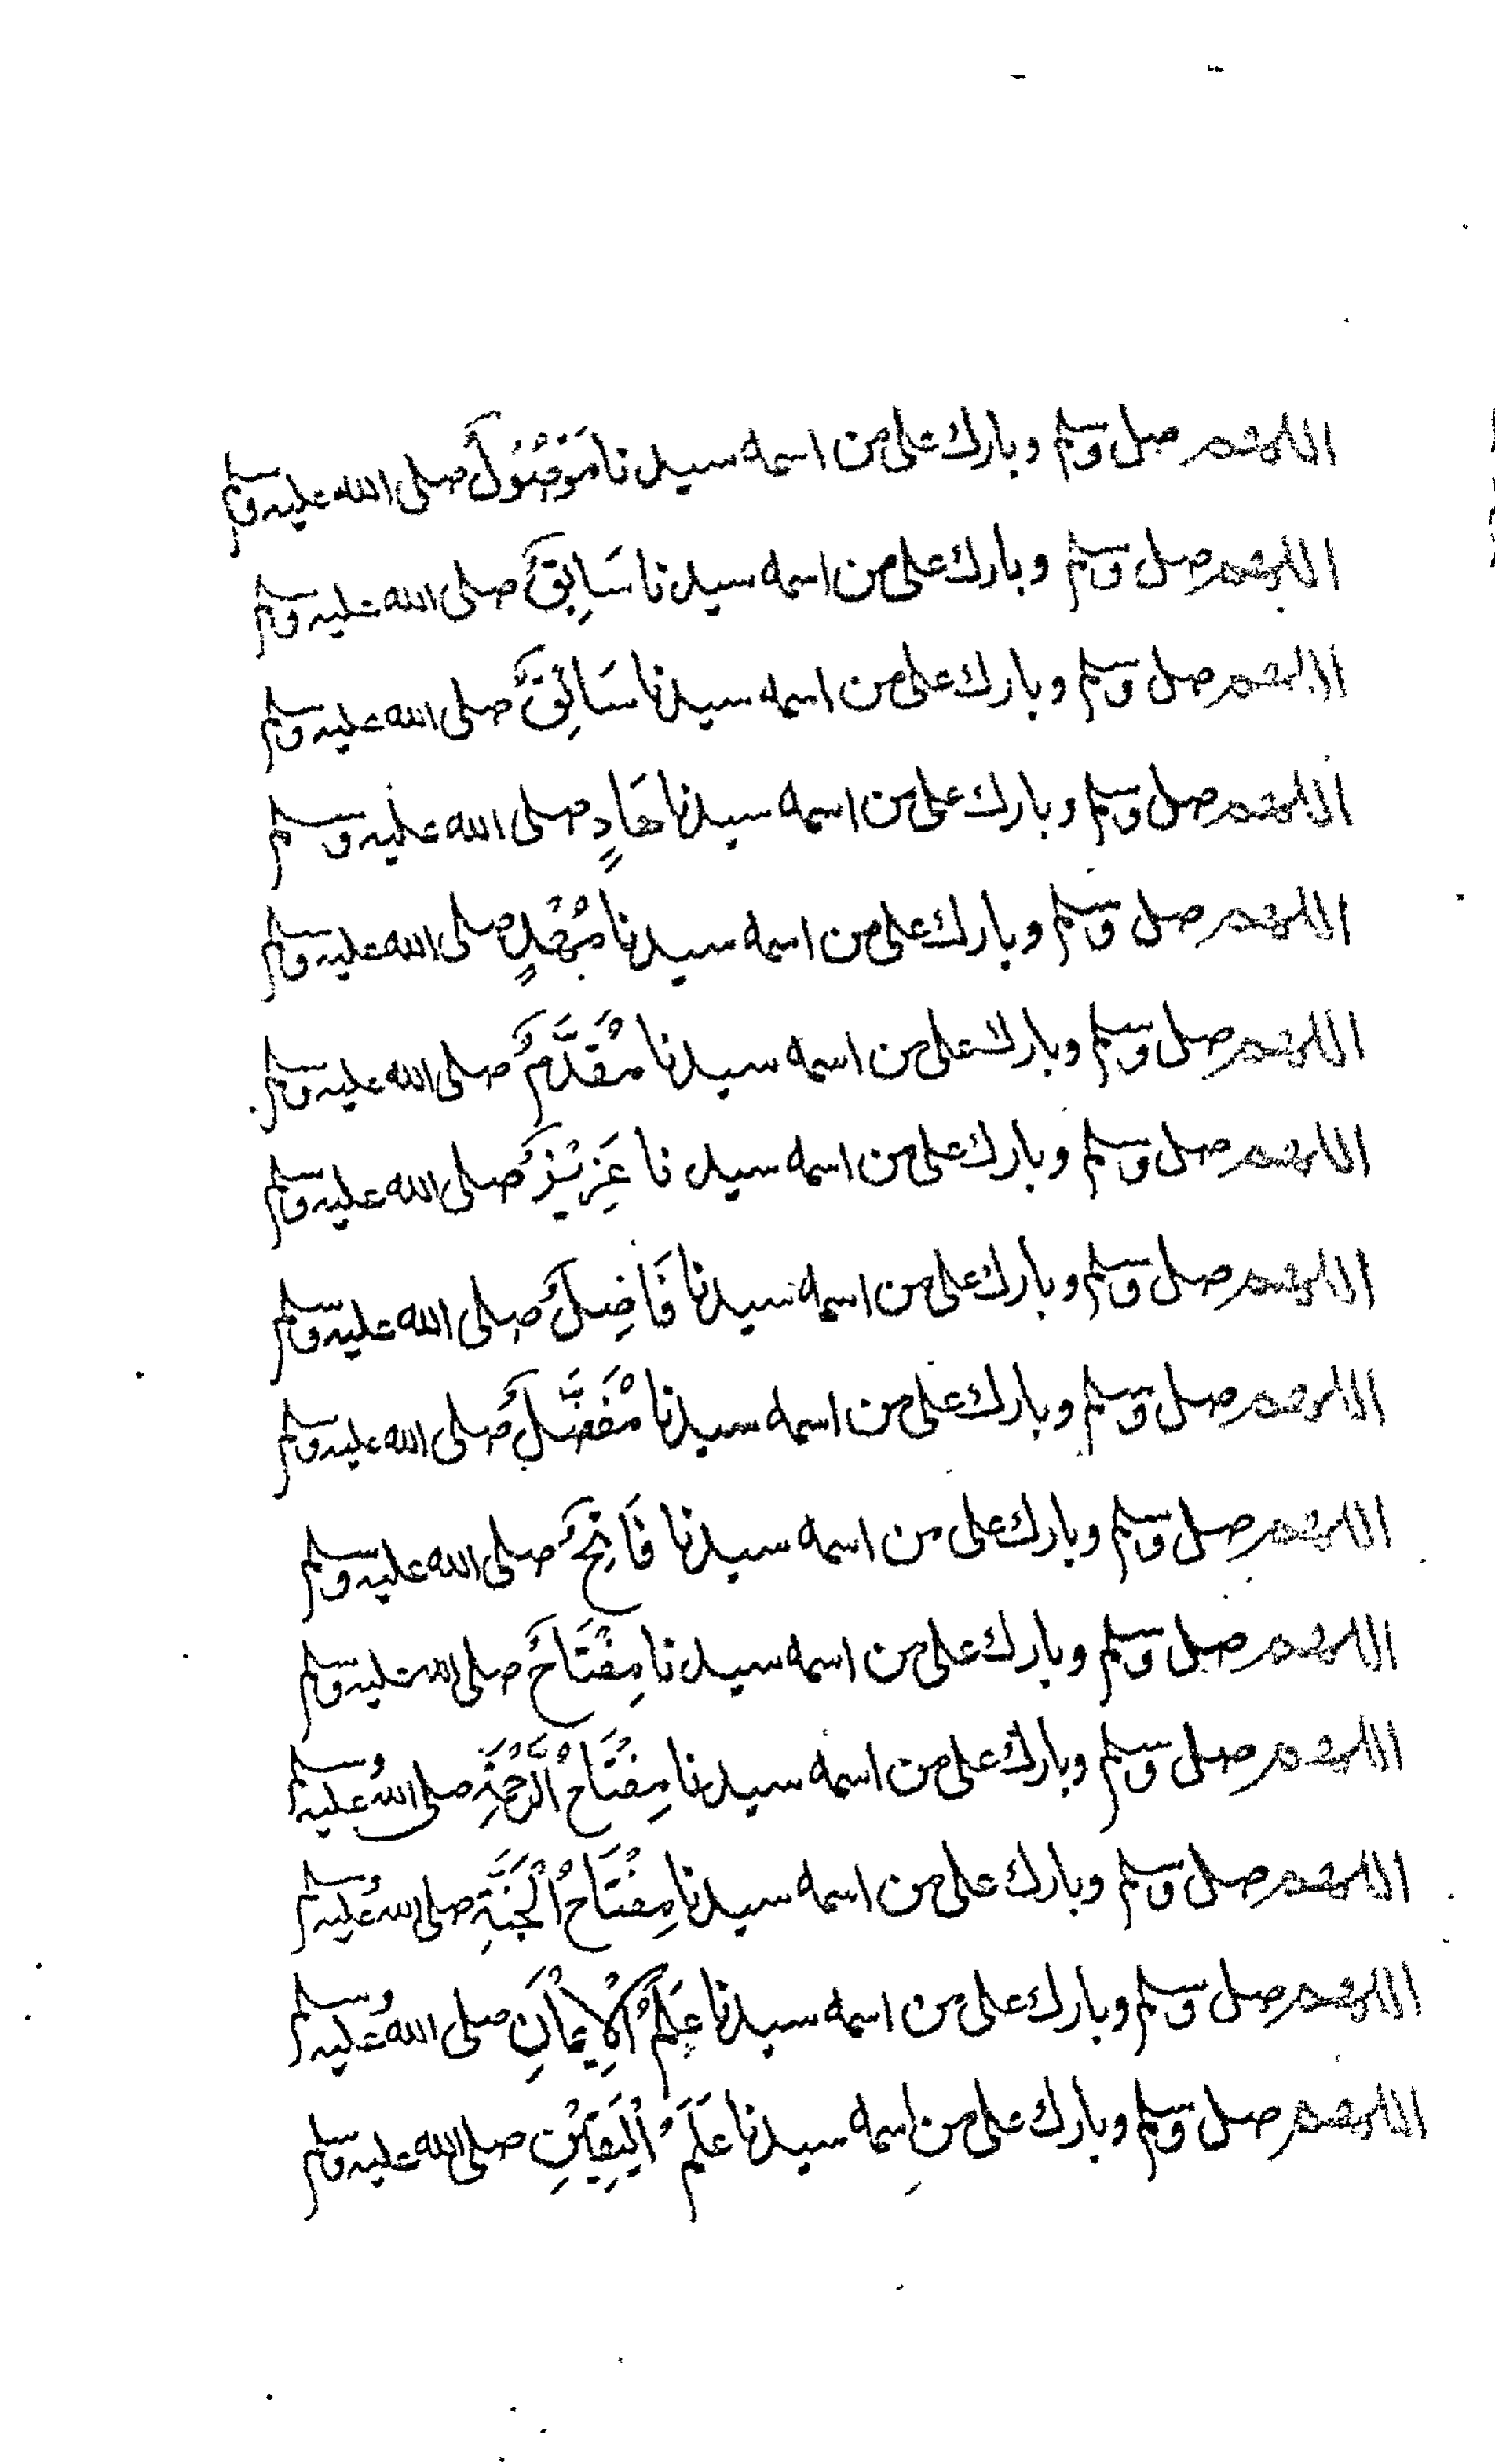 اللهم صل وسلم وبارك على من اسمه سيدنا مَوْصُولٌ صلى الله عليه وسلم
اللهم صل وسلم وبارك على من اسمه سيدنا سَابِقٌ صلى الله عليه وسلم
اللهم صل وسلم وبارك على من اسمه سيدنا سَائِقٌ صلى الله عليه وسلم
اللهم صل وسلم وبارك على من اسمه سيدنا هَادٍ صلى الله عليه وسلم
اللهم صل وسلم وبارك على من اسمه سيدنا مُهْدٍ صلى الله عليه وسلم
اللهم صل وسلم وبارك على من اسمه سيدنا مُقَدَّمٌ صلى الله عليه وسلم
اللهم صل وسلم وبارك على من اسمه سيدنا عَزِيْزٌ صلى الله عليه وسلم
اللهم صل وسلم وبارك على من اسمه سيدنا فَاضِلٌ صلى الله عليه وسلم
اللهم صل وسلم وبارك على من اسمه سيدنا مُفَضَّلٌ صلى الله عليه وسلم
اللهم صل وسلم وبارك على من اسمه سيدنا فَاتِحٌ صلى الله عليه وسلم
اللهم صل وسلم وبارك على من اسمه سيدنا مِفْتَاحٌ صلى الله عليه وسلم
اللهم صل وسلم وبارك على من اسمه سيدنا مِفْتَاحُ الرَّحْمَةِ صلى الله عليه وسلم
اللهم صل وسلم وبارك على من اسمه سيدنا مِفْتَاحُ الْجَنَّةِ صلى الله عليه وسلم
اللهم صل وسلم وبارك على من اسمه سيدنا عَلَمُ الْاِيْمَانِ صلى الله عليه وسلم
اللهم صل وسلم وبارك على من اسمه سيدنا عَلَمُ الْيَقِيْنِ صلى الله عليه وسلم